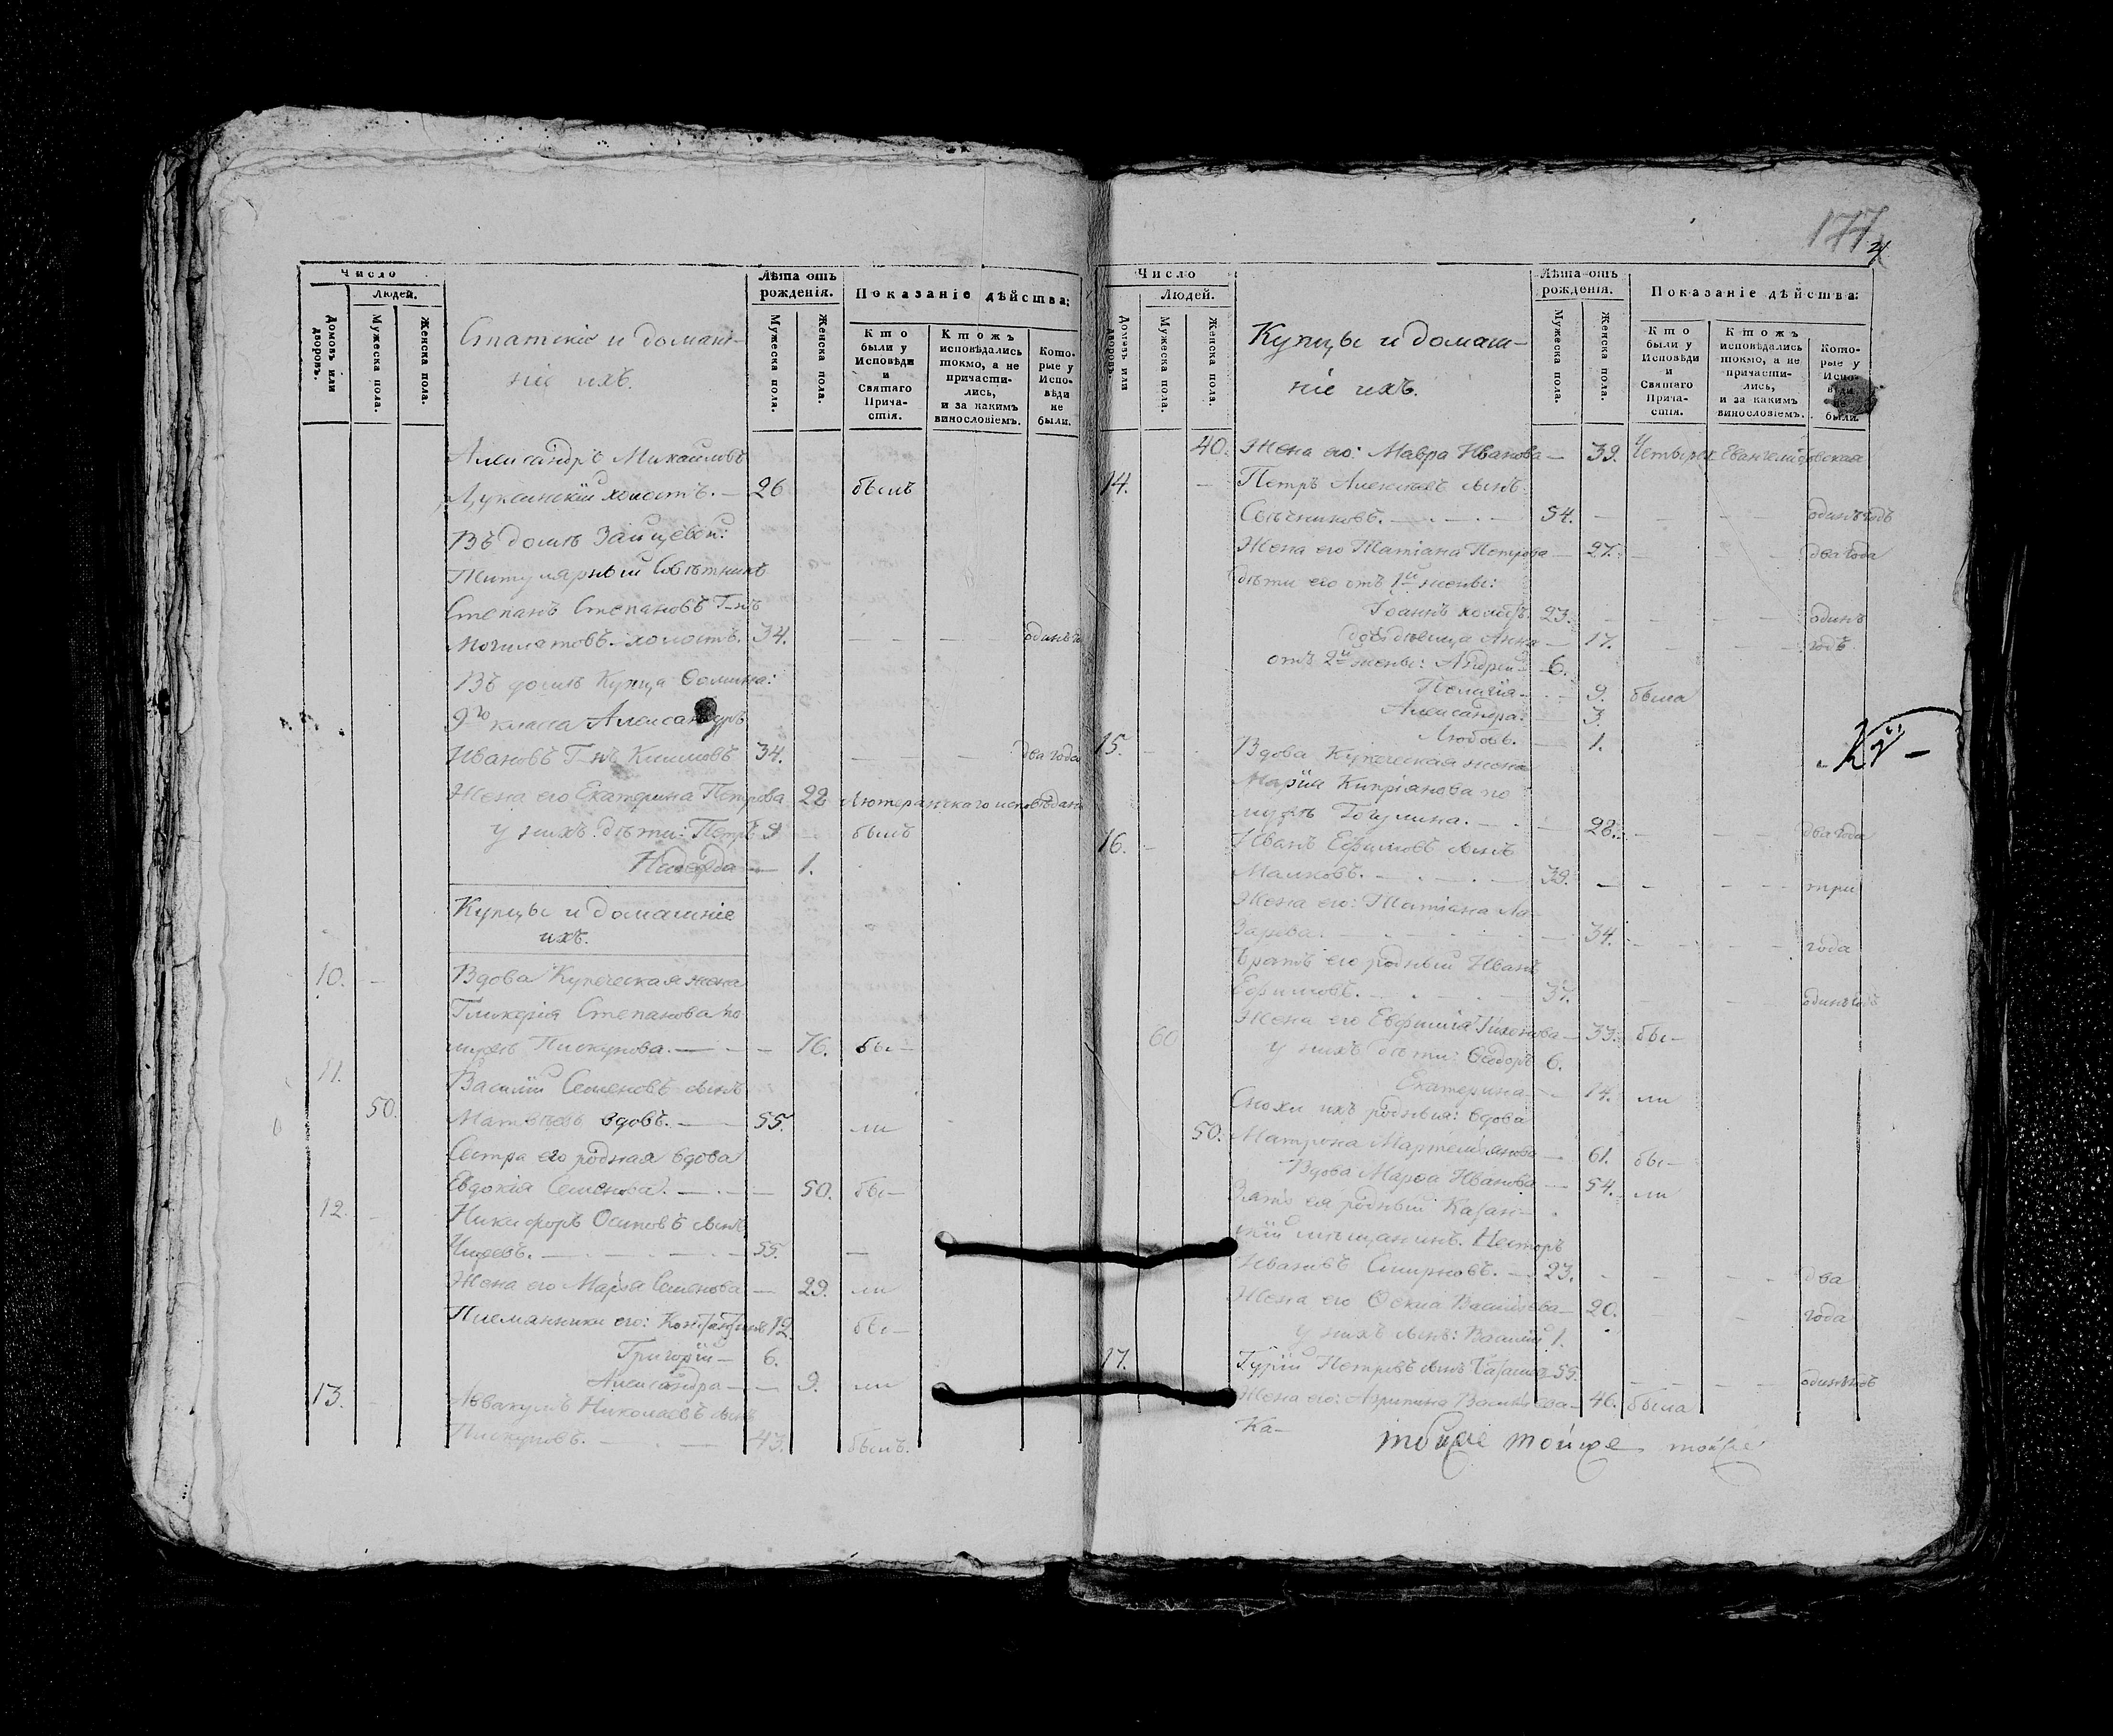 Число
Людей.
Домовъ или дворовъ.
Мужеска пола.
Женска пола.
Статскіе и домаш-
ніе ихъ.
Лѣта отъ рожденія.
Мужеска пола.
Женска пола.
Показаніе дѣйства:
Кто были у Исповѣди и Святаго Прича-стія.
Ктожъ исповѣдались токмо, а не причасти-лись, и за какимъ винословіемъ.
Кото-рые у Испо-вѣди не были.
Александръ Михайловъ
холостъ. — 26 былъ
Въ домѣ Зайцевой:
Титулярный Совѣтникъ
Степанъ Степановъ Г-нъ
холостъ. 34. — — — — одинъ
Въ домѣ Купца Ѳомина:
9го класса Александръ
Ивановъ Г-нъ Климовъ 34. — — — два года
Жена его Екатерина Петрова 22 Лютеранскаго исповѣдан
у нихъ дѣти: Петръ 9 былъ
Надежда — 1.
Купцы и домашніе
ихъ.
10. — Вдова Купеческая жена
Гликерія Степанова по
мужѣ Пискунова. — — 76. бы—
11. Василій Семеновъ сынъ
50. Матвѣевъ вдовъ. — 55. ли
Сестра его родная вдова
Евдокія Семенова. — — 50. бы—
12. — Никифоръ Осиповъ сынъ
Чижевъ. — — — 55. —
Жена его Марья Семенова — 29. ли
Племянники его: Констянтинъ 12. бы—
Григорій — 6.
Александра — — 9. ли
13. — Аввакумъ Николаевъ сынъ
Пискуновъ. — — 43. былъ.
177
Число
Людей.
Домовъ или дворовъ.
Мужеска пола.
Женска пола.
Купцы и домаш-
ніе ихъ.
Лѣта отъ рожденія.
Мужеска пола.
Женска пола.
Показаніе дѣйства:
Кто были у Исповѣди и Святаго Прича-стія.
Ктожъ исповѣдались токмо, а не причасти-лись, и за какимъ винословіемъ.
Кото-рые у Испо-вѣди не были.
40. Жена его: Мавра Иванова — 39. Четырех Евангелистовская
14. — Петръ Алексѣевъ сынъ
Свѣчниковъ. — — — 54. — — — — одинъ годъ
Жена его Татіана Петрова — 27. — — — два года
дѣти его отъ 1й жены:
Іоаннъ холостъ. 23. — — — — одинъ
дѣвица Анна — 17. — — — годъ
отъ 2й жены: Андрей 6.
Пелагія — 9. была
Александра. — 3.
Любовь. — 1.
15. — Вдова Купеческая жена
Марія Кипріанова по
мужѣ — 28. — — — два года
16. — Иванъ Ефимовъ сынъ
Малковъ. — — — 39. — — — — три
Жена его: Татіана Ла-
зарева. — — — 34. — — — года
братъ его родный Иванъ
Ефимовъ. — — — 37. — одинъ годъ
60 Жена его Евфимія — 33. бы—
у нихъ дѣти: Ѳедоръ 6.
Екатерина — 14. ли
Снохи ихъ родныя: вдова
50. Матрона Мартемьянова — 61. бы—
Вдова Марѳа Иванова — 54. ли
Зять ея родный Казан-
скій мѣщанинъ Несторъ
Ивановъ Смирновъ. — 23. — — — два
Жена его Ѳекла Васильева — 20. — года
у нихъ сынъ: Василій 1.
17. Гурій Петровъ сынъ 55. — — — — одинъ годъ
Жена его: Агрипина Васильева — 46. была
Ка—